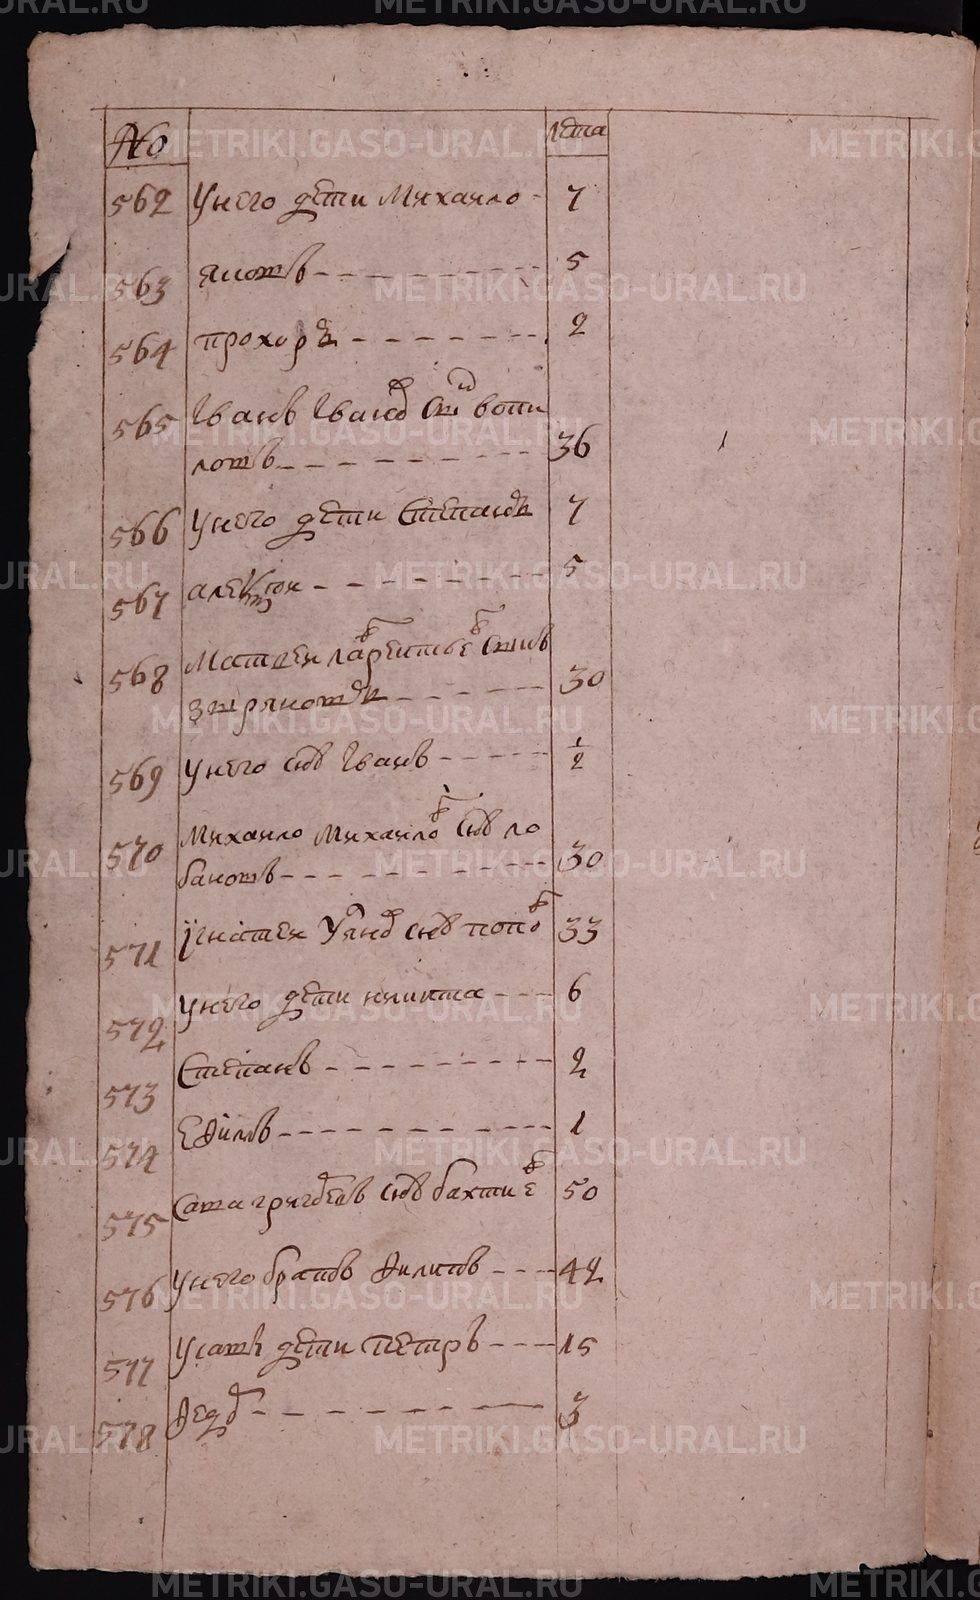 METRIKI.GASO-URAL.RU
№ лета
562 У него дети Михаило - 7
563 яковъ 5
564 прохоръ 2
565 Іванъ Івановъ снъ вопи
ловъ 36
566 У него дети Степанъ 7
567 алексей 5
568 Матвеи лаврентьевъ снъ
зыряновъ 30
569 У него снъ Іванъ 1/2
570 михаило михаиловъ снъ ло
бановъ 30
571 Ігнатеи снъ поповъ 33
572 У него дети никита 6
573 Степанъ 2
574 Ефимъ 1
575 Сава григорьевъ снъ бахтиевъ 50
576 У него братъ Филипъ 42
577 У савы дети петръ 15
578 Федоръ 3